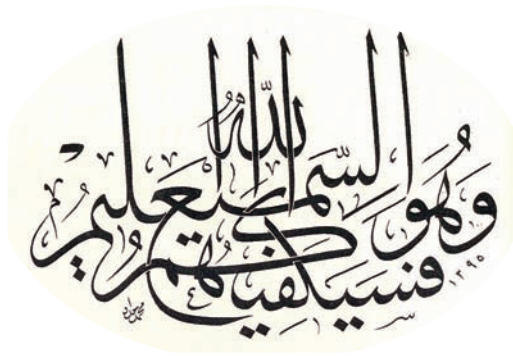 فَسَيَكْفِيكَهُمُ اللّٰهُ
وَهُوَ السَّمِيعُ الْعَلِيمُ
١٣٩٥